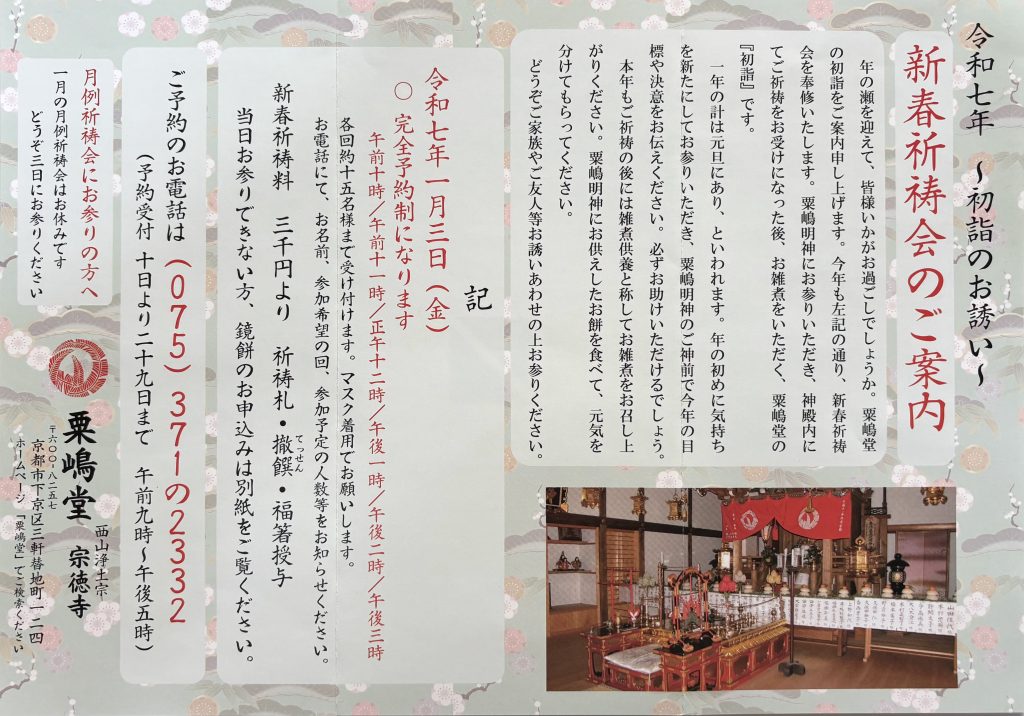 令和七年　～初詣のお誘い～
新春祈祷会のご案内
年の瀬を迎えて、皆様いかがお過ごしでしょうか。粟嶋堂
の初詣をご案内申し上げます。今年も左記の通り、新春祈祷
会を奉修いたします。粟嶋明神にお参りいただき、神殿内に
てご祈祷をお受けになった後、お雑煮をいただく、粟嶋堂の
『初詣』です。
一年の計は元旦にあり、といわれます。年の初めに気持ち
を新たにしてお参りいただき、粟嶋明神のご神前で今年の目
標や決意をお伝えください。必ずお助けいただけるでしょう。
本年もご祈祷の後には雑煮供養と称してお雑煮をお召し上
がりください。粟嶋明神にお供えしたお餅を食べて、元気を
分けてもらってください。
どうぞご家族やご友人等お誘いあわせの上お参りください。
記
令和七年一月三日（金）
○　完全予約制になります
午前十時／午前十一時／正午十二時／午後一時／午後二時／午後三時
各回約十五名様まで受け付けます。マスク着用でお願いします。
お電話にて、お名前、参加希望の回、参加予定の人数等をお知らせください。
新春祈祷料　三千円より　祈祷札・撤饌・福箸授与
てっせん
当日お参りできない方、鏡餅のお申込みは別紙をご覧ください。
ご予約のお電話は（075）371の2332
（予約受付　十日より二十九日まで　午前九時～午後五時）
月例祈祷会にお参りの方へ
一月の月例祈祷会はお休みです
どうぞ三日にお参りください
西山浄土宗
粟嶋堂　宗徳寺
〒六〇〇-八二五七
京都市下京区三軒替地町一二四
ホームページ「粟嶋堂」でご検索ください